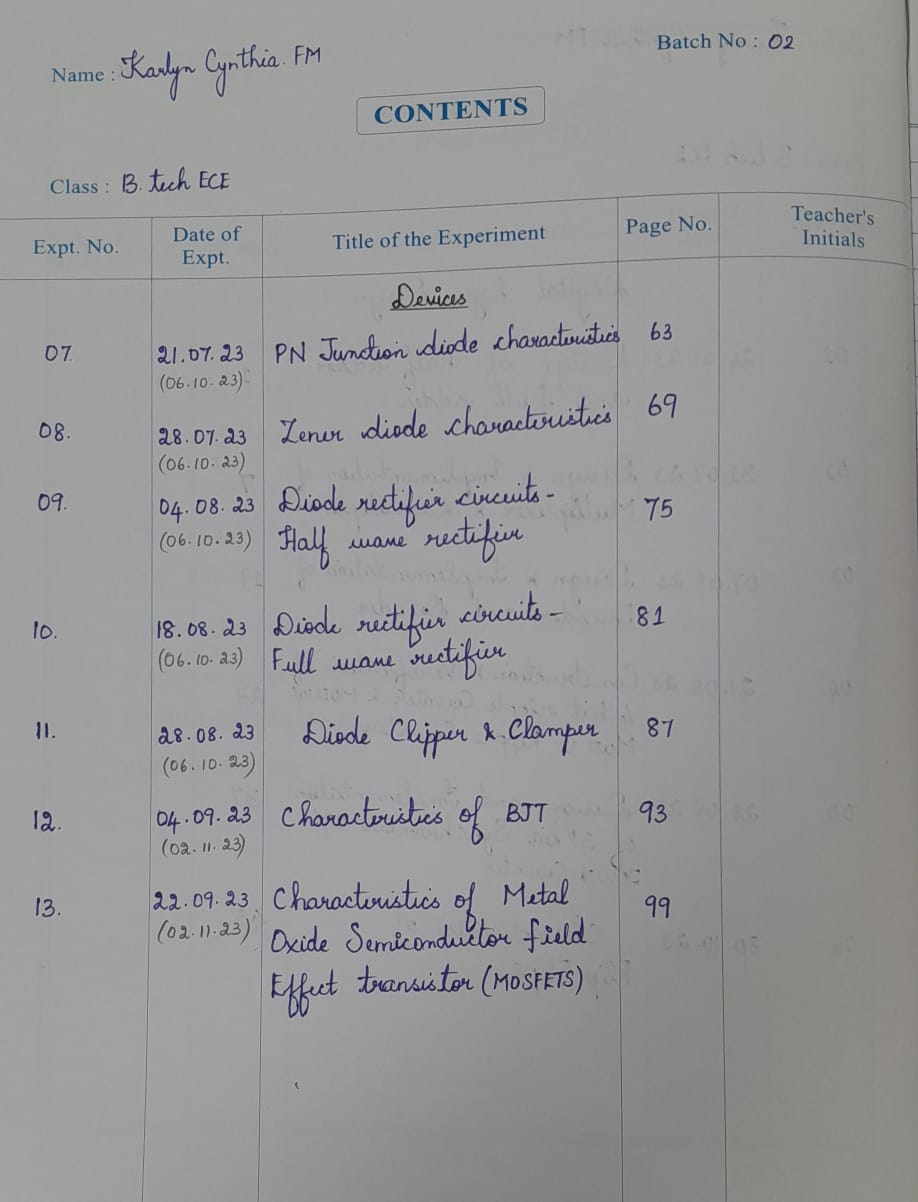 Batch No : 02
Name : Karlyn Cynthia. FM
CONTENTS
Class : B. tech ECE
Expt. No. Date of Expt. Title of the Experiment Page No. Teacher's Initials
Devices
07. 21.07.23 PN Junction diode characteristics 63
(06.10.23)
08. 28.07.23 Zener diode characteristics 69
(06.10.23)
09. 04.08.23 Diode rectifier circuits - 75
(06.10.23) Half wave rectifier
10. 18.08.23 Diode rectifier circuits - 81
(06.10.23) Full wave rectifier
11. 28.08.23 Diode Clipper & Clamper 87
(06.10.23)
12. 04.09.23 Characteristics of BJT 93
(02.11.23)
13. 22.09.23 Characteristics of Metal 99
(02.11.23) Oxide Semiconductor field
Effect transistor (MOSFETS)